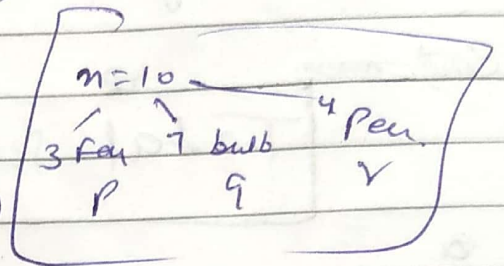 n=10
3 Fan 7 bulb 4 Pen
p q r